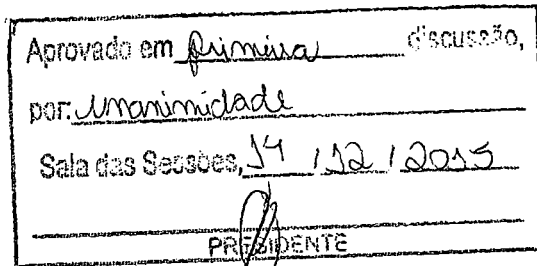 Aprovado em primeira discussão,
por: unanimidade
Sala das Sessões, 14 / 12 / 2015
PRESIDENTE